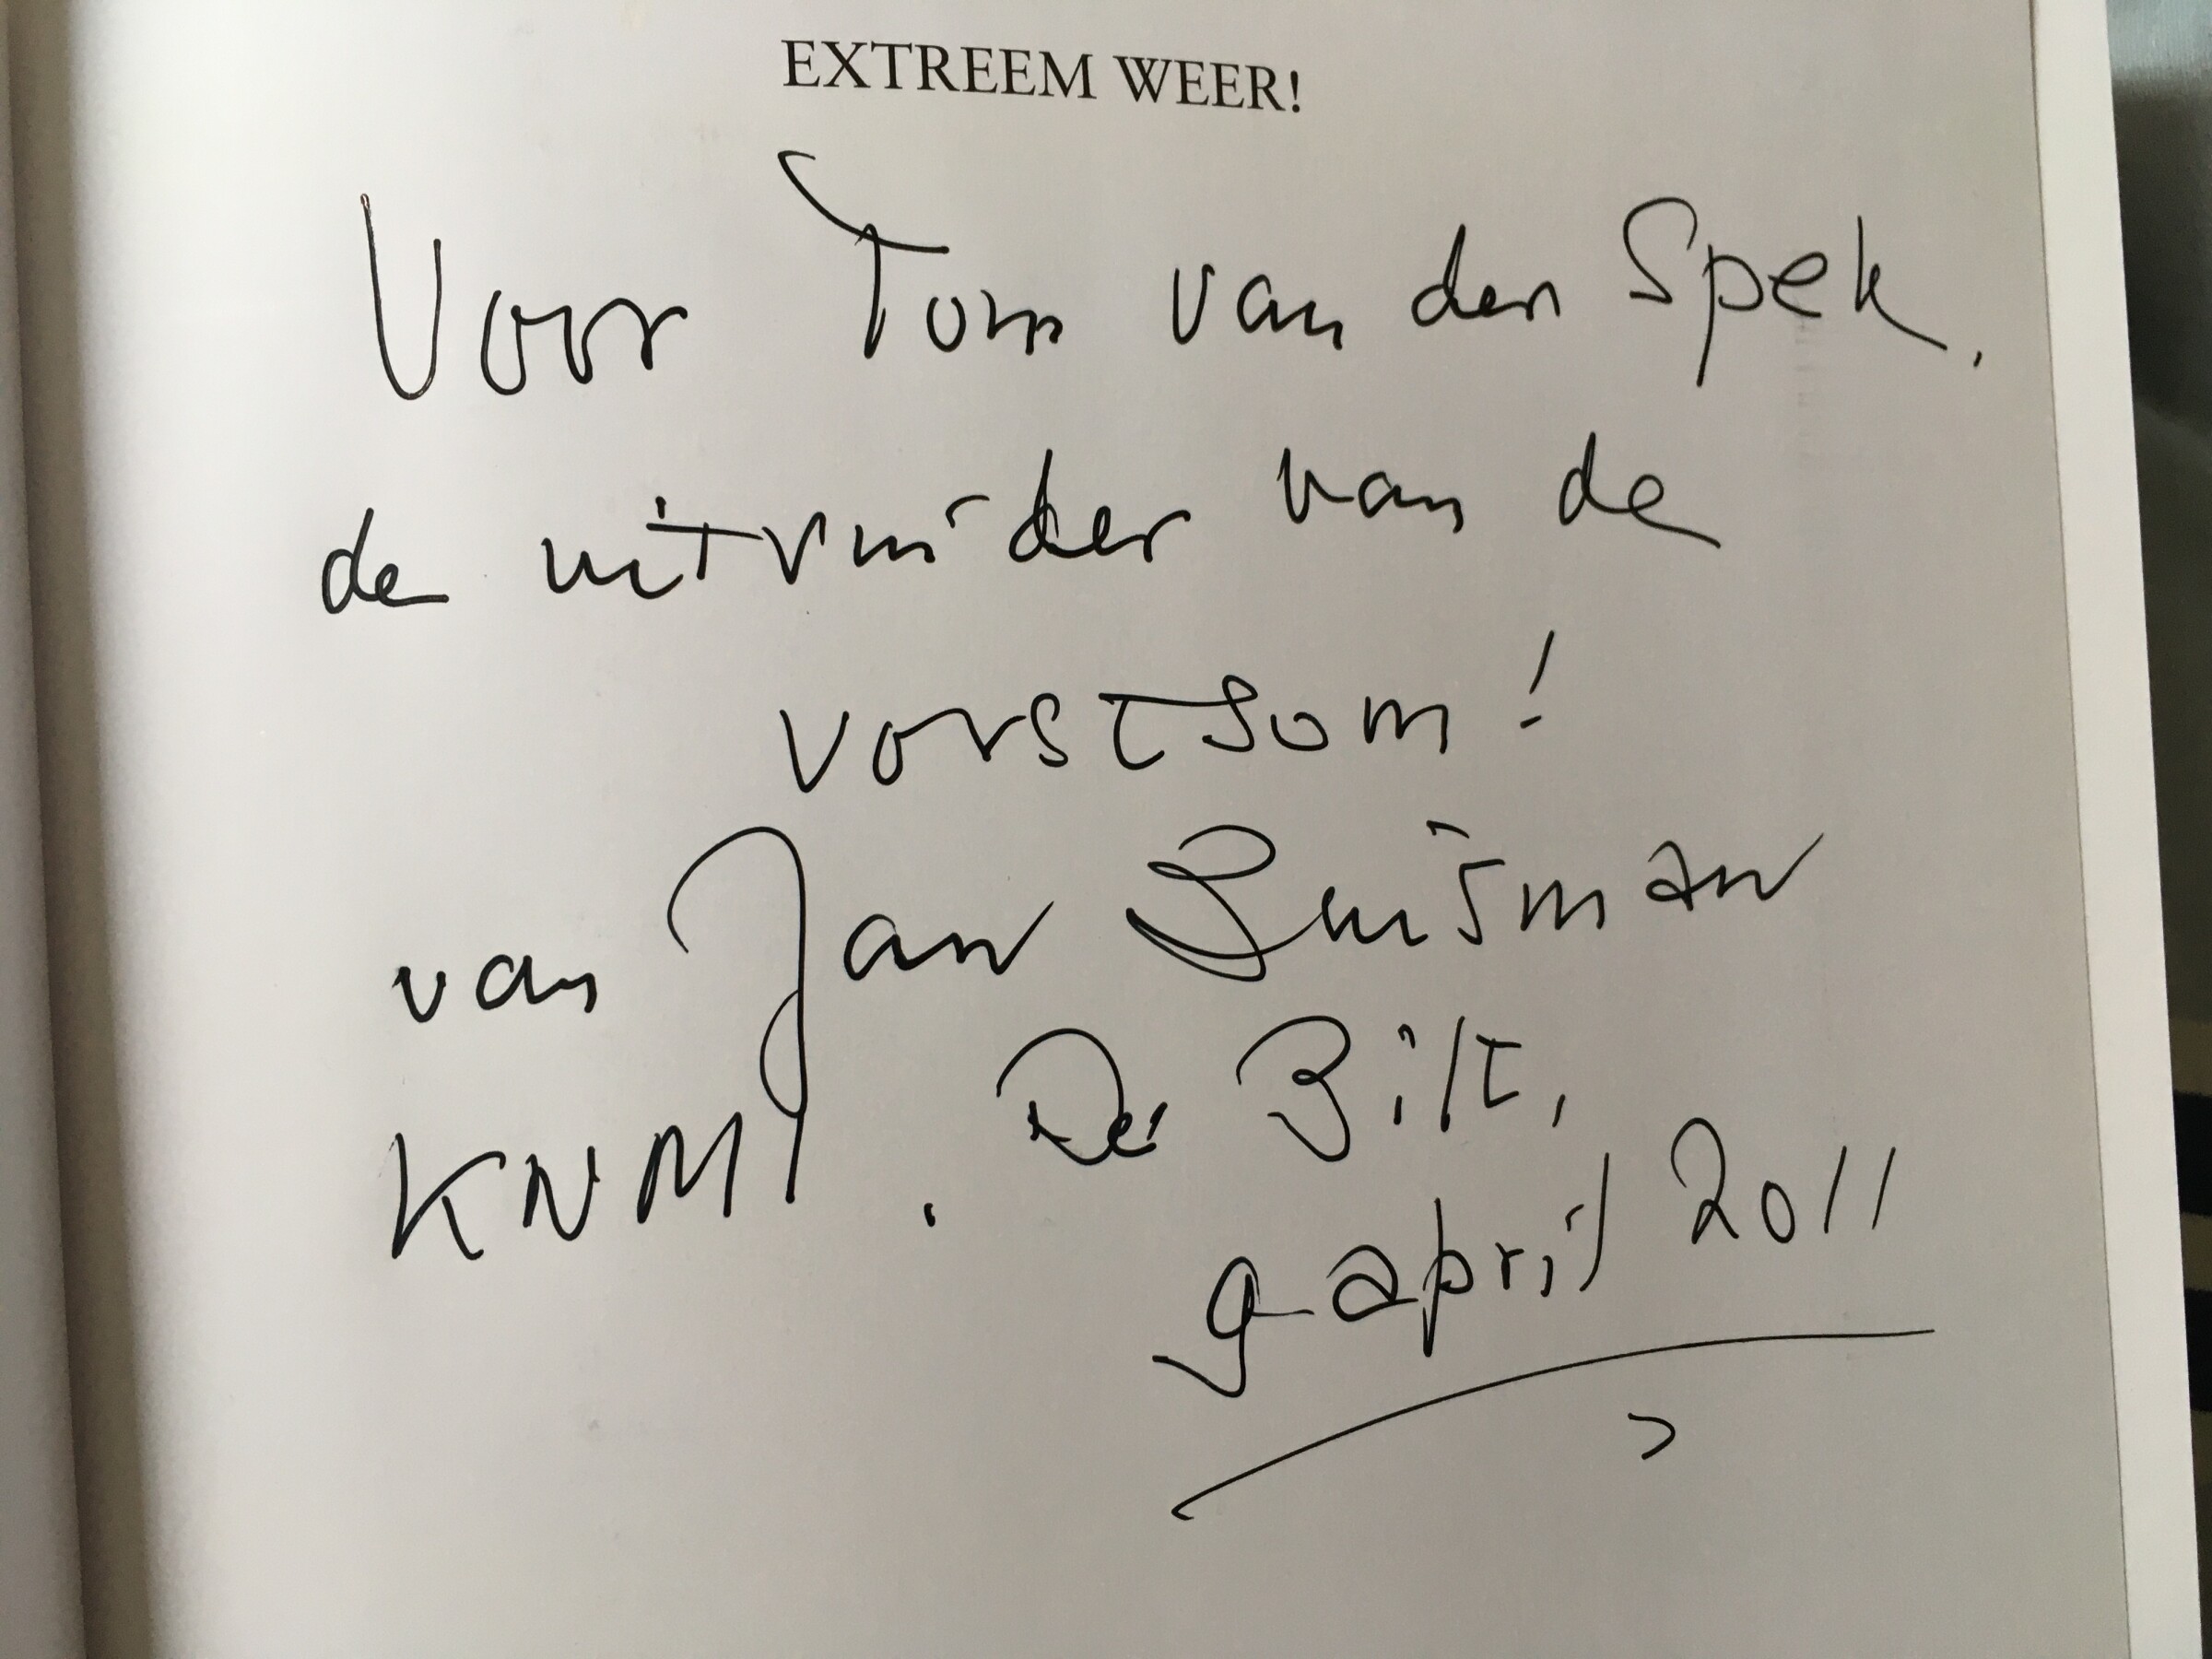 EXTREEM WEER!
Voor Tom van der Spek,
de uitvinder van de
vorstsom!
van Jan Buisman
KNMI. De Bilt,
9 april 2011